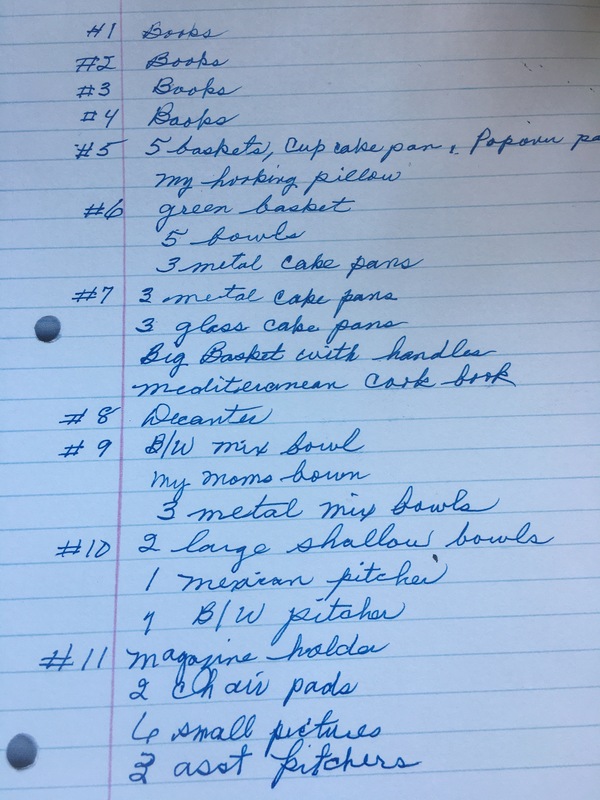 #1 Books
#2 Books
#3 Books
#4 Books
#5 5 baskets, Cup cake pan, Popover pa
my hooking pillow
#6 green basket
5 bowls
3 metal cake pans
#7 3 metal cake pans
3 glass cake pans
Big Basket with handles
mediterranean Cook book
#8 Decanter
#9 B/W mix bowl
my moms bown
3 metal mix bowls
#10 2 large shallow bowls
1 mexican pitcher
B/W pitcher
#11 magazine holder
2 chair pads
6 small pictures
asst pitchers